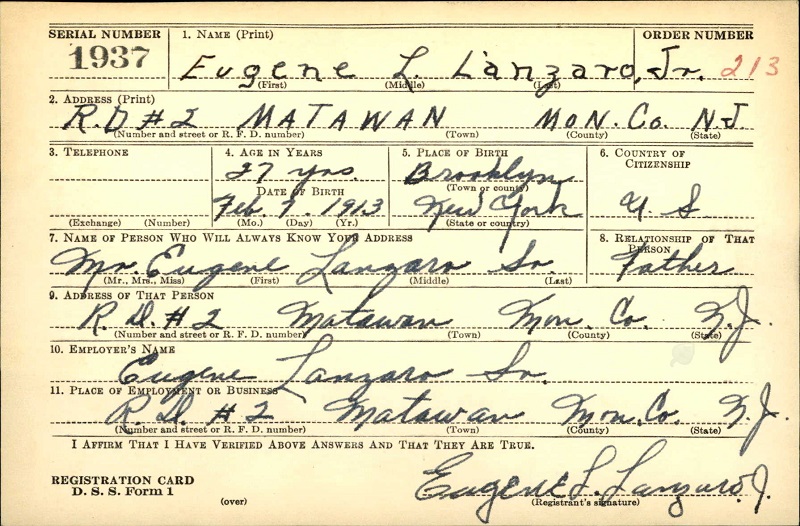 SERIAL NUMBER 1. NAME (Print) ORDER NUMBER
1937 Eugene L. Lanzaro, Jr. 213
(First) (Middle) (Last)
2. ADDRESS (Print)
R.D #2 MATAWAN MON. Co. N.J
(Number and street or R. F. D. number) (Town) (County) (State)
3. TELEPHONE 4. AGE IN YEARS 5. PLACE OF BIRTH 6. COUNTRY OF CITIZENSHIP
27 yrs. Brooklyn
(Town or county)
DATE OF BIRTH
Feb. 7. 1913 New York U S
(Exchange) (Number) (Mo.) (Day) (Yr.) (State or country)
7. NAME OF PERSON WHO WILL ALWAYS KNOW YOUR ADDRESS 8. RELATIONSHIP OF THAT PERSON
Mr. Eugene Lanzaro Sr. Father
(Mr., Mrs., Miss) (First) (Middle) (Last)
9. ADDRESS OF THAT PERSON
R. D. #2 Matawan Mon. Co. N.J.
(Number and street or R. F. D. number) (Town) (County) (State)
10. EMPLOYER'S NAME
Eugene Lanzaro Sr.
11. PLACE OF EMPLOYMENT OR BUSINESS
R. D. #2 Matawan Mon. Co. N.J.
(Number and street or R. F. D. number) (Town) (County) (State)
I AFFIRM THAT I HAVE VERIFIED ABOVE ANSWERS AND THAT THEY ARE TRUE.
REGISTRATION CARD
D. S. S. Form 1 (over)
Eugene L. Lanzaro J.
(Registrant's signature)